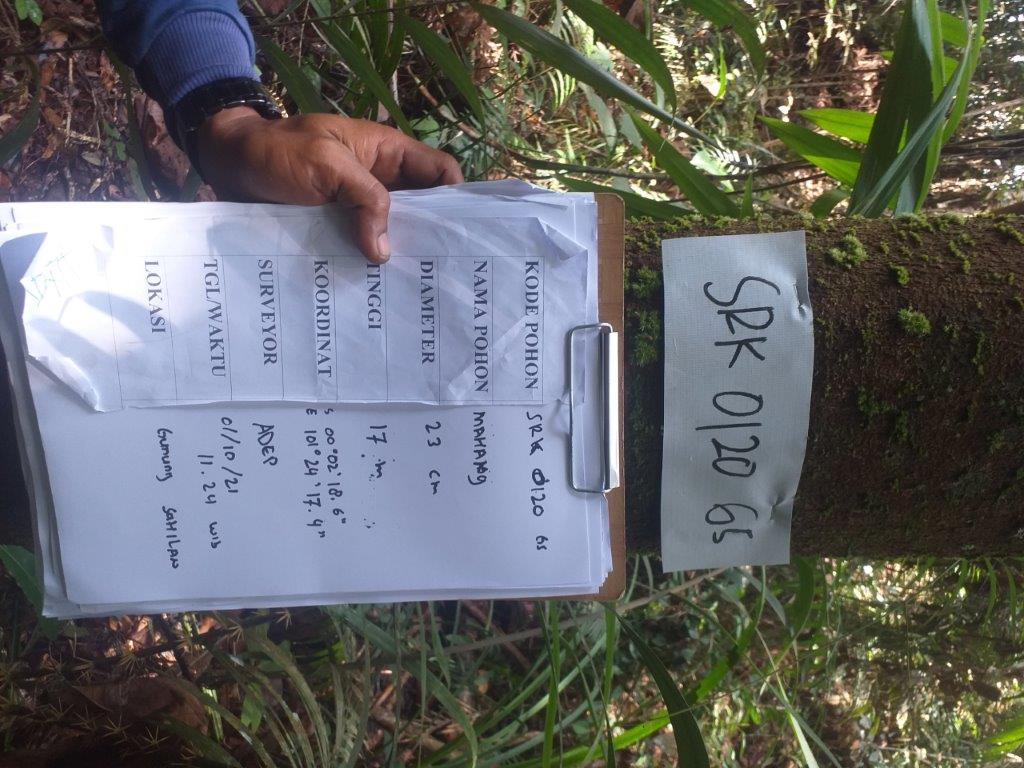 SRK 0120 GS
KODE POHON SRK 0120 GS
NAMA POHON MAHANG
DIAMETER 23 cm
TINGGI 17 m
KOORDINAT S 00° 02' 18. 6"
E 101° 24' 17. 4"
SURVEYOR ADEP
TGL/WAKTU 01/10/21
11. 24 WIB
LOKASI GUNUNG SAHILAN